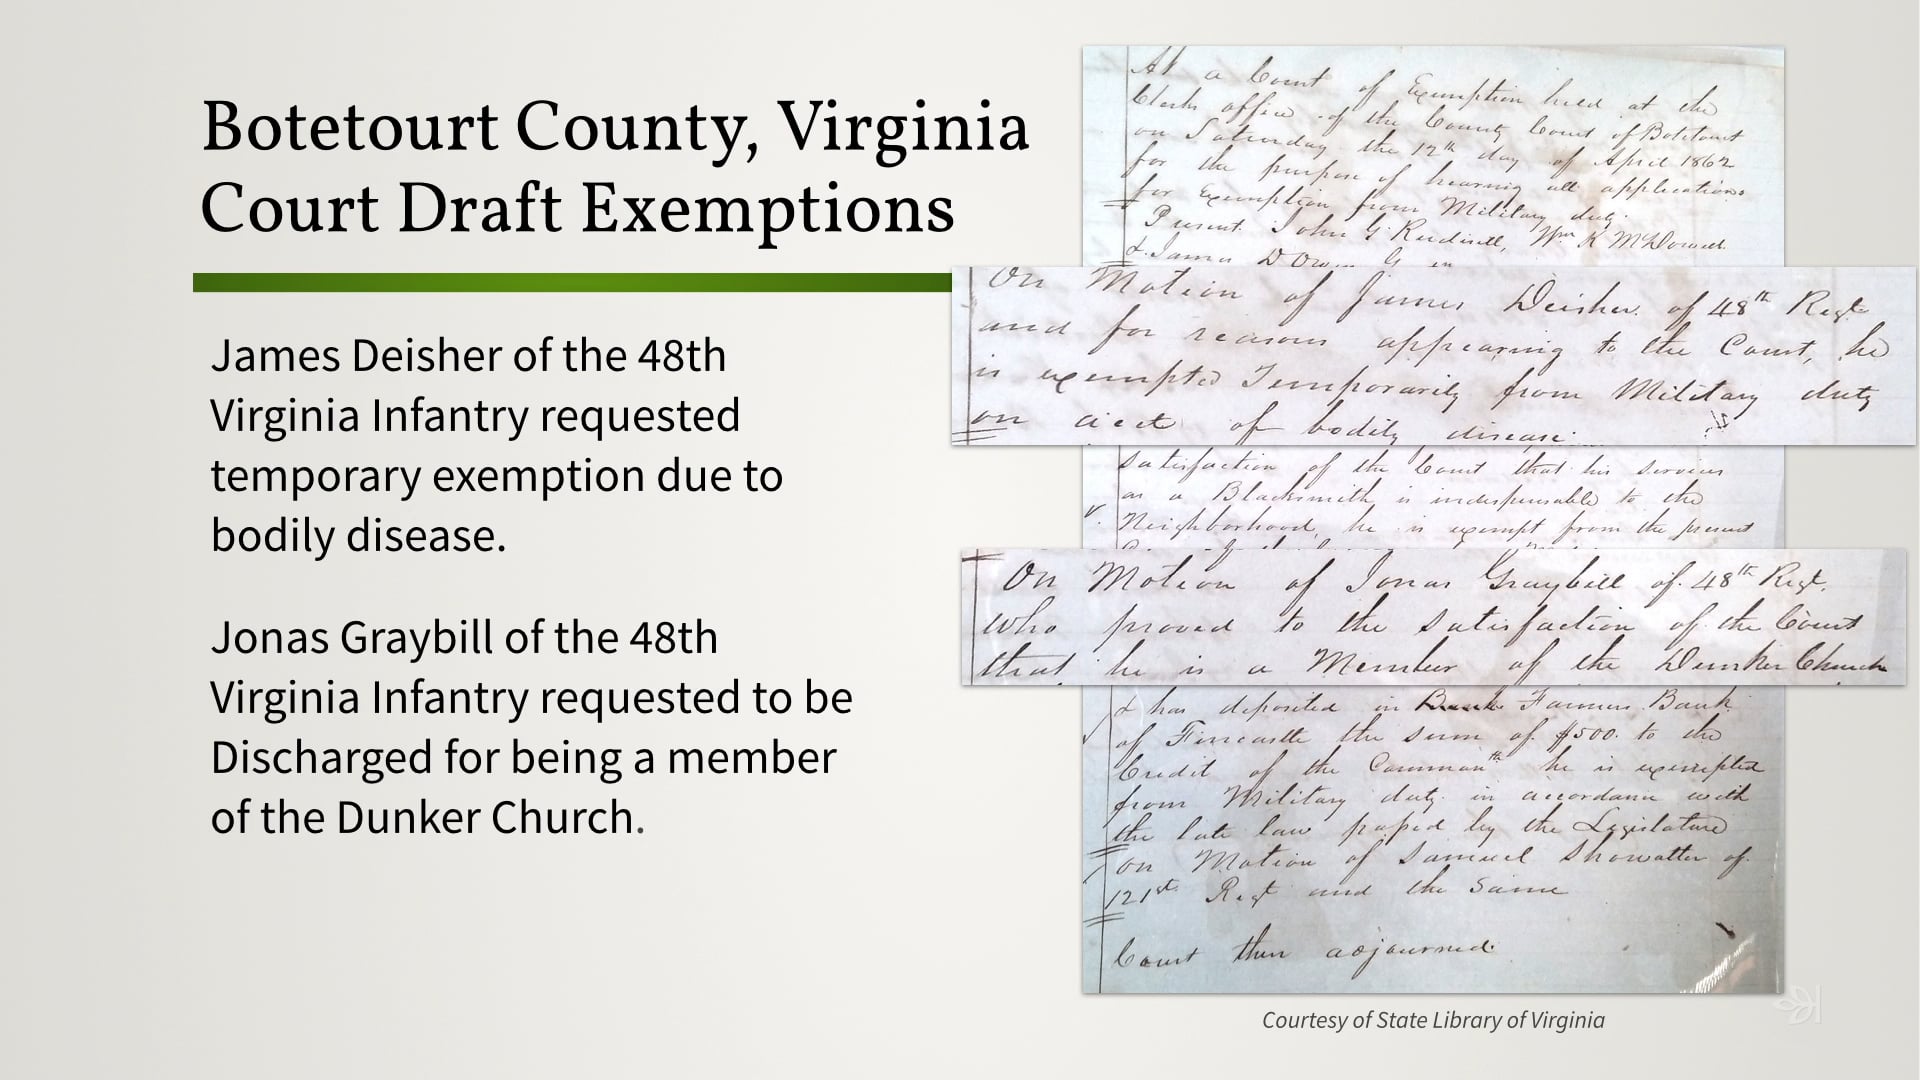 Botetourt County, Virginia
Court Draft Exemptions
James Deisher of the 48th
Virginia Infantry requested
temporary exemption due to
bodily disease.
Jonas Graybill of the 48th
Virginia Infantry requested to be
Discharged for being a member
of the Dunker Church.
At a Court of Exemption held at the
Clerks office of the County Court of Botetourt
on Saturday the 12th day of April 1862
for the purpose of hearing all applications
for Exemption from Military duty.
Present. John G Rudisill, Wm K McDowell
& James D
On Motion of James Deisher of 48th Regt
and for reasons appearing to the Court, he
is exempted Temporarily from Military duty
on acct of bodily disease.
satisfaction of the Court that his services
as a Blacksmith is indispensable to the
Neighborhood, he is exempt from the present
On Motion of Jonas Graybill of 48th Regt.
who proved to the satisfaction of the Court
that he is a Member of the Dunker Church
& has deposited in Farmers Bank
of Fincastle the sum of $500. to the
Credit of the Commonth he is exempted
from Military duty in accordance with
the late law passed by the Legislature
On Motion of Samuel Showalter of
121st Regt and the same
Court then adjourned.
Courtesy of State Library of Virginia